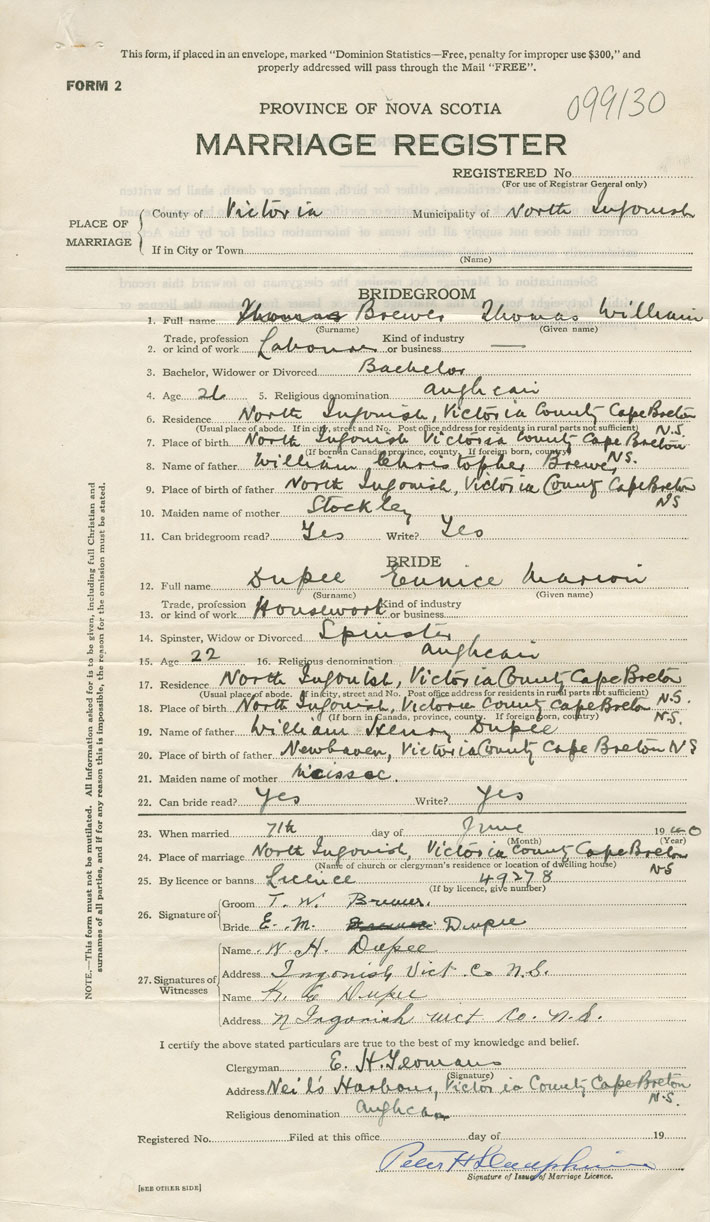 This form, if placed in an envelope, marked "Dominion Statistics—Free, penalty for improper use $300," and
properly addressed will pass through the Mail "FREE".
FORM 2
099130
PROVINCE OF NOVA SCOTIA
MARRIAGE REGISTER
REGISTERED No
(For use of Registrar General only)
PLACE OF MARRIAGE
County of Victoria Municipality of North Ingonish
If in City or Town
(Name)
BRIDEGROOM
1. Full name Thomas Brewer Thomas William
(Surname) (Given name)
2. Trade, profession or kind of work Labourer Kind of industry or business —
3. Bachelor, Widower or Divorced Bachelor
4. Age 26 5. Religious denomination Anglican
6. Residence North Ingonish, Victoria County Cape Breton N.S.
(Usual place of abode. If in city, street and No. Post office address for residents in rural parts not sufficient)
7. Place of birth North Ingonish Victoria County Cape Breton N.S.
(If born in Canada, province, county. If foreign born, country)
8. Name of father William Christopher Brewer
9. Place of birth of father North Ingonish, Victoria County Cape Breton NS
10. Maiden name of mother Stockley
11. Can bridegroom read? Yes Write? Yes
BRIDE
12. Full name Dupee Eunice Marion
(Surname) (Given name)
13. Trade, profession or kind of work Housework Kind of industry or business
14. Spinster, Widow or Divorced Spinster
15. Age 22 16. Religious denomination Anglican
17. Residence North Ingonish, Victoria County Cape Breton N.S.
(Usual place of abode. If in city, street and No. Post office address for residents in rural parts not sufficient)
18. Place of birth North Ingonish, Victoria County Cape Breton N.S.
(If born in Canada, province, county. If foreign born, country)
19. Name of father William Henry Dupee
20. Place of birth of father Newhaven, Victoria County Cape Breton NS
21. Maiden name of mother
22. Can bride read? Yes Write? Yes
23. When married 7th day of June 1940
(Month) (Year)
24. Place of marriage North Ingonish, Victoria County Cape Breton NS
(Name of church or clergyman's residence or location of dwelling house)
25. By licence or banns Licence 49278
(If by licence, give number)
26. Signature of
Groom T. W. Brewer.
Bride E. M. Dupee
27. Signatures of Witnesses
Name W. H. Dupee
Address Ingonish Vict. Co N.S.
Name K. E Dupee
Address N Ingonish Vict Co. N.S.
I certify the above stated particulars are true to the best of my knowledge and belief.
Clergyman E. H. Yeomans
(Signature)
Address Neil's Harbour, Victoria County Cape Breton N.S.
Religious denomination Anglican
Registered No. Filed at this office day of 19
Peter H
Signature of Issuer of Marriage Licence.
[SEE OTHER SIDE]
NOTE.—This form must not be mutilated. All information asked for is to be given, including full Christian and
surnames of all parties, and if for any reason this is impossible, the reason for the omission must be stated.